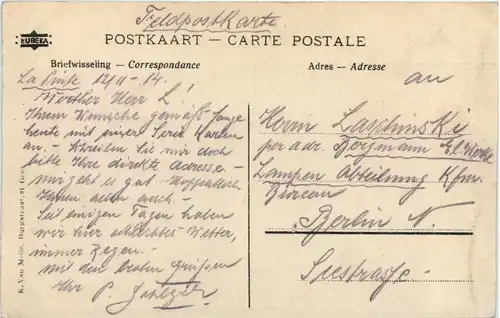 Feldpostkarte.
EUREKA
POSTKAART — CARTE POSTALE
Briefwisseling — Correspondance
Adres — Adresse
La Pinte 12/11 - 14.
Werther Herr L!
Ihrem Wunsche gemäß fange
heute mit einer Serie Karten
an. - Schreiben Sie mir doch
bitte Ihre direkte Adresse -
mir geht es gut - Hoffentlich
Ihnen allen auch -
Seit einigen Tagen haben
wir hier schlechtes Wetter,
immer Regen. -
Mit den besten Grüßen
Ihr P.
K. Van Melle, Burgstraat, 81
an
Herrn Laschinski
per adr. Bergmann El. Werke
Lampen Abteilung
Bureau
Berlin N
Seestrasse.